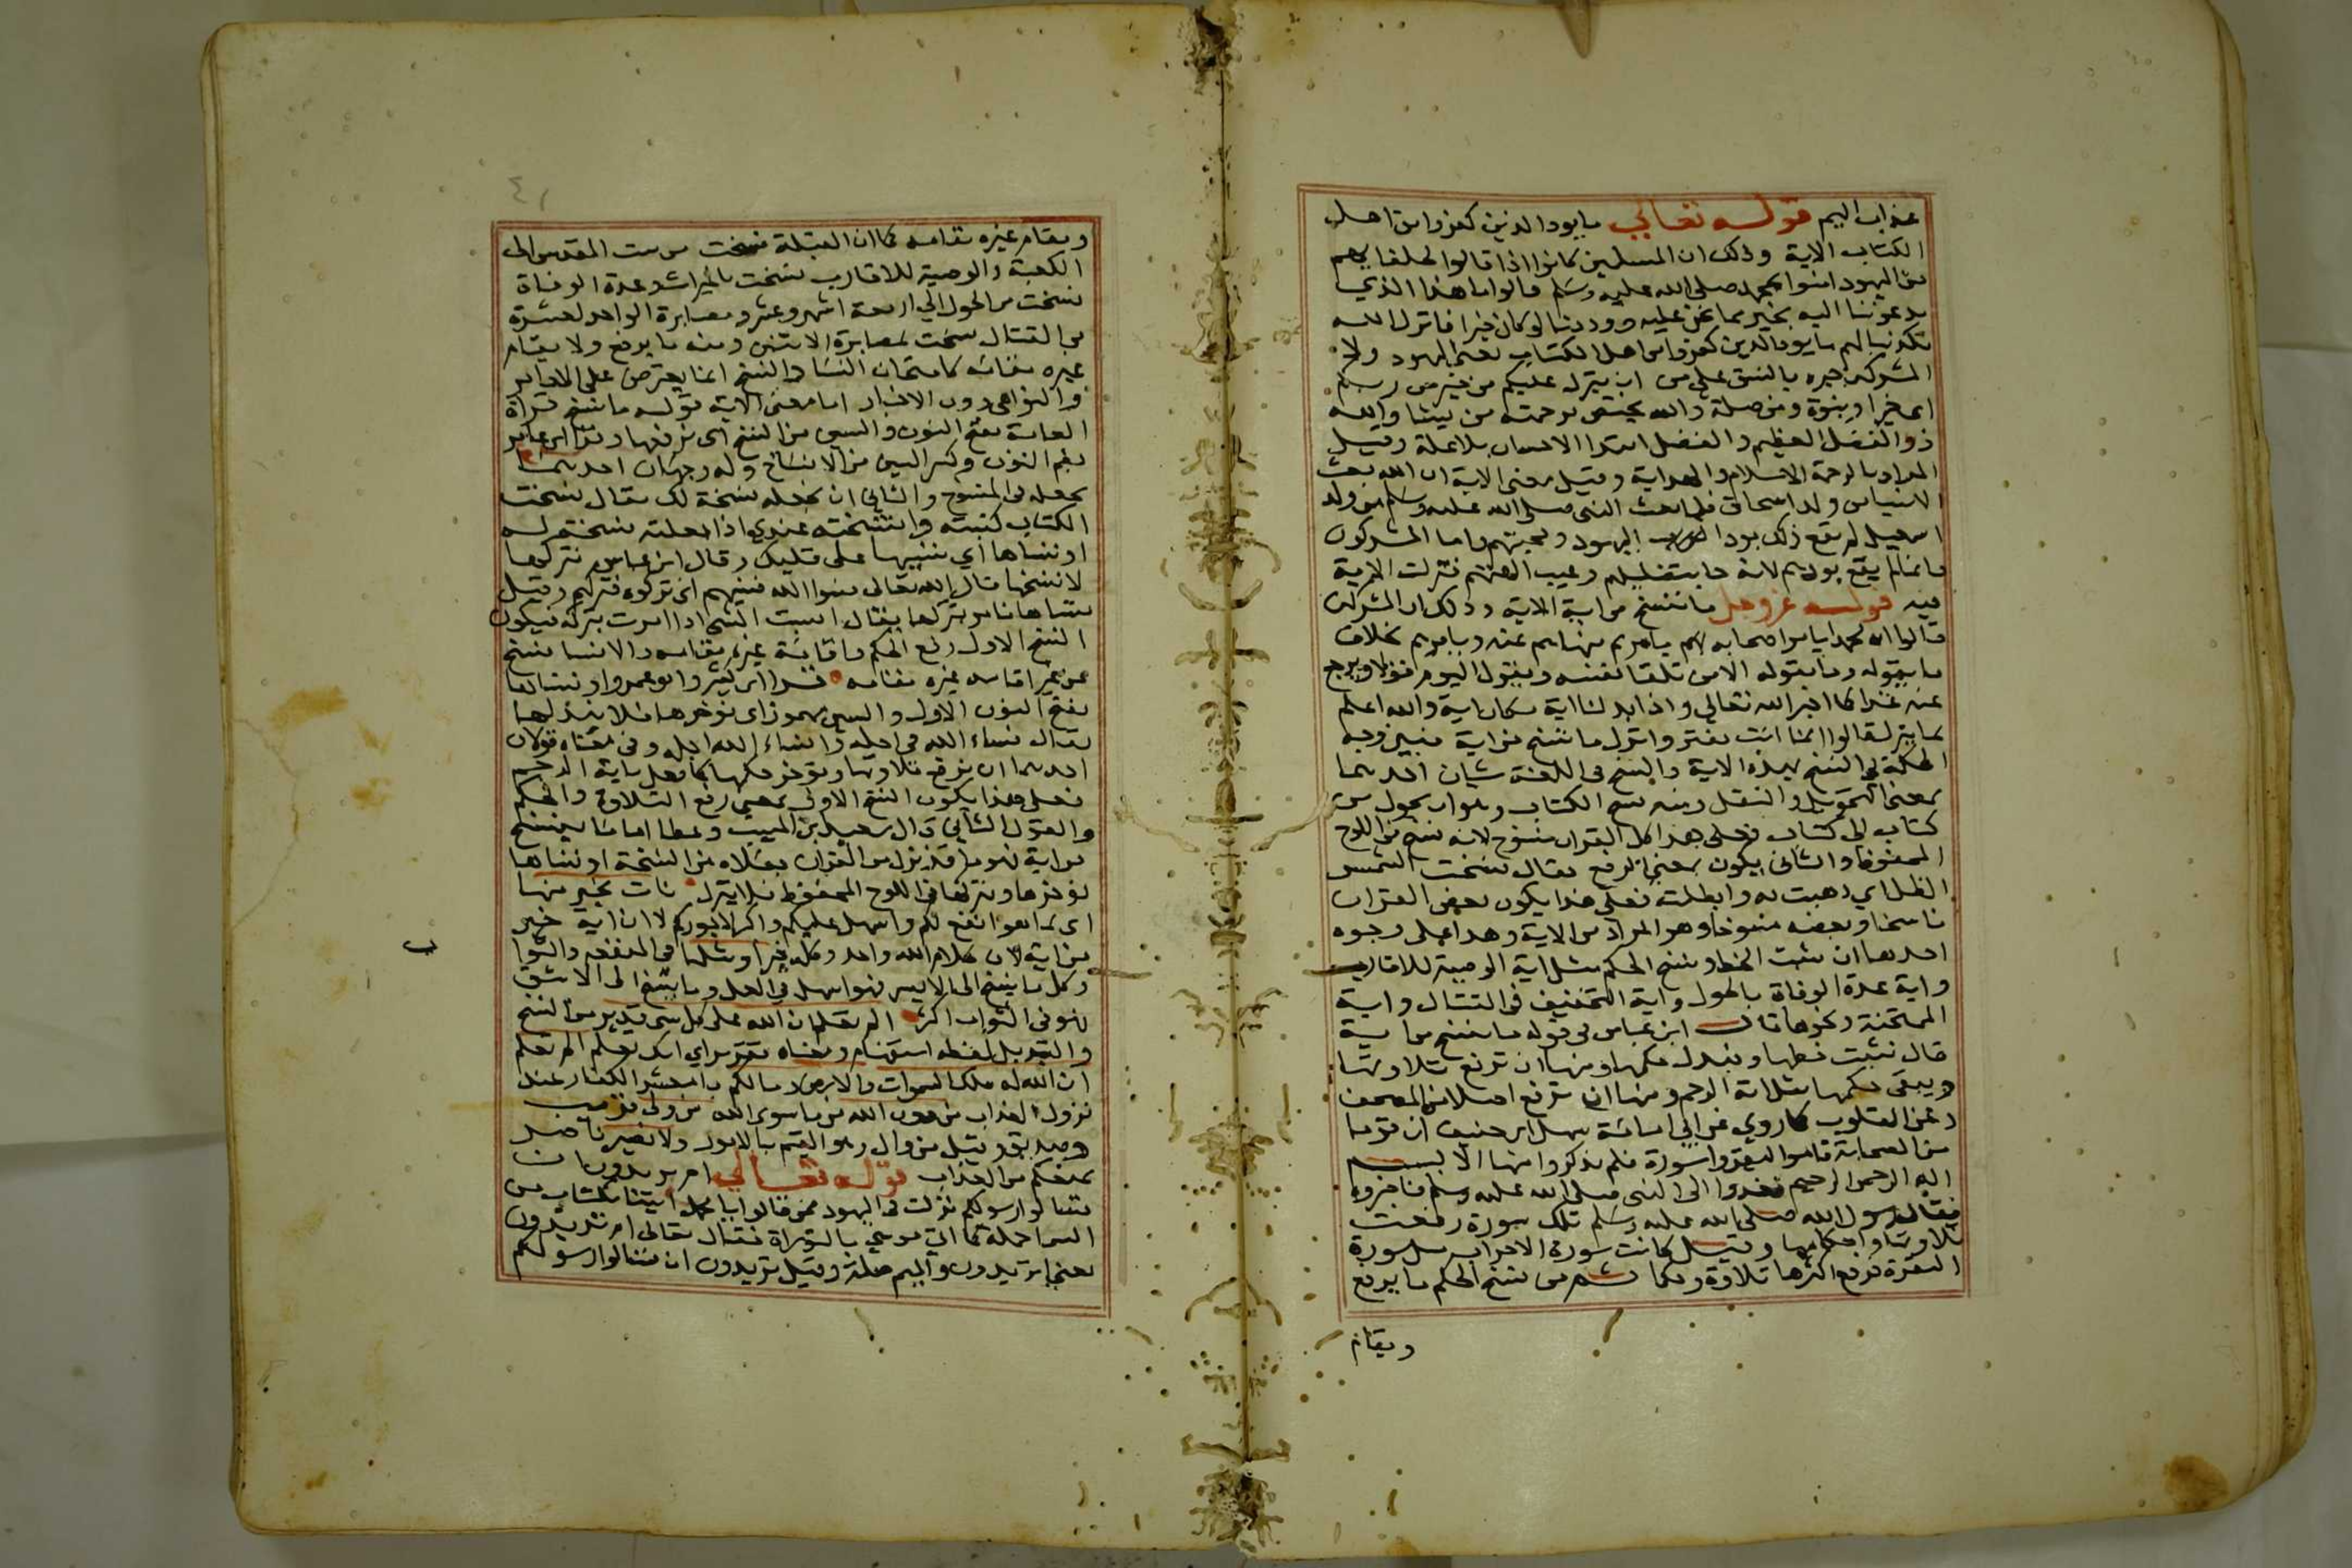 عذاب اليم قوله تعالي ما يود الذين كفروا من اهل
الكتاب الاية وذلك ان المسلمين كانوا اذا قالوا لحلفايهم
من اليهود امنوا بمحمد صلى الله عليه وسلم قالوا ما هذا الذي
يدعوننا اليه بخير مما نحن عليه ووددنا لو كان خيرا فانزل الله
تكذيبا لهم ما يود الذين كفروا من اهل الكتاب يعني اليهود ولا
المشركين جره بالنسق على من ان ينزل عليكم من خير من ربكم
اي خير ونبوة والله يختص برحمته من يشا والله
ذو الفضل العظيم والفضل ابتدا الاحسان بلا علة وقيل
المراد بالرحمة الاسلام والهداية وقيل معنى الاية ان الله بعث
الانبيا من ولد اسحاق فلما بعث النبي صلى الله عليه وسلم من ولد
اسمعيل لم يقع ذلك بود اليهود ومحبتهم واما المشركون
فانما لم يقع بودهم لانه جا بتضليلهم وعيب الهتهم فنزلت الاية
فيه قوله عز وجل ما ننسخ من اية الاية وذلك ان المشركين
قالوا ان محمدا يامر اصحابه بامر ثم ينهاهم عنه ويامرهم بخلاف
ما يقوله وما يقوله الا من تلقا نفسه ويقول اليوم قولا ويرجع
عنه غدا كما اخبر الله تعالي واذا بدلنا اية مكان اية والله اعلم
بما ينزل قالوا انما انت مفتر وانزل ما ننسخ من اية فبين وجه
الحكمة في النسخ بهذه الاية والنسخ في اللغة شيان احدهما
بمعنى التحويل والنقل ومنه نسخ الكتاب وهو ان يحول من
كتاب الي كتاب فعلى هذا كل القران منسوخ لانه نسخ من اللوح
المحفوظ والثاني يكون بمعنى الرفع يقال نسخت الشمس
الظل اي ذهبت به وابطلته فعلى هذا يكون بعض القران
ناسخا وبعضه منسوخا وهو المراد من الاية وهذا على وجوه
احدها ان يثبت الخط وينسخ الحكم مثل اية الوصية للاقارب
واية عدة الوفاة بالحول واية التخفيف في القتال واية
الممتحنة ونحوها قال ابن عباس في قوله ما ننسخ من اية
قال نثبت خطها ونبدل حكمها ومنها ان ترفع تلاوتها
ويبقى حكمها مثل اية الرجم ومنها ان ترفع اصلا من المصحف
وعن القلوب كما روي عن ابي امامة سهل بن حنيف ان قوما
من الصحابة قاموا ليقروا سورة فلم يذكروا منها الا بسم
الله الرحمن الرحيم فغدوا الى النبي صلى الله عليه وسلم فاخبروه
فقال رسول الله صلى الله عليه وسلم تلك سورة رفعت
تلاوتها واحكامها وقيل كانت سورة الاحزاب مثل سورة
البقرة فرفع اكثرها تلاوة وحكما ثم من نسخ الحكم ما يرفع
ويقام
٤١
ويقام غيره مقامه كما ان القبلة نسخت من بيت المقدس الى
الكعبة والوصية للاقارب نسخت بالميراث وعدة الوفاة
نسخت من الحول الي اربعة اشهر وعشر ومصابرة الواحد لعشرة
في القتال نسخت بمصابرة الاثنين ومنه ما يرفع ولا يقام
غيره مقامه كامتحان النسا والنسخ انما يعترض على الاوامر
والنواهي دون الاخبار اما معنى الاية قوله ما ننسخ قراة
العامة بفتح النون والسين من النسخ اي نرفعها وقرا ابن عامر
بضم النون وكسر السين من الانساخ وله وجهان احدهما
نجعله في المنسوخ والثاني ان نجعله نسخة لك يقال نسخت
الكتاب كتبته وانتسخته عندي اذا جعلته نسخة له
او ننساها اي ننسيها على قلبك وقال ابن عباس نتركها
لا ننسخها قال الله تعالى نسوا الله فنسيهم اي تركوه فتركهم وقيل
ننساها نامر بتركها يقال انسيت الشي اذا امرت بتركه فيكون
النسخ الاول رفع الحكم واقامة غيره مقامه والانسا نسخ
من غير اقامة غيره مقامه قرا ابن كثير وابو عمرو او ننساها
بفتح النون الاول والسين مهموز اي نوخرها فلا نبدلها
يقال نساء الله في اجله وانساء الله اجله وفي معناه قولان
احدهما ان نرفع تلاوتها ونوخر حكمها كما فعل باية الرجم
فعلى هذا يكون النسخ الاول بمعنى رفع التلاوة والحكم
والقول الثاني قال سعيد بن المسيب وعطا اما ما ننسخ
من اية فهو ما قد نزل من القران جعلاه من النسخة او ننساها
نوخرها ونتركها في اللوح المحفوظ فلا ينزل نات بخير منها
اي بما هو انفع لكم واسهل عليكم واكثر لاجوركم لا ان اية خير
من اية لان كلام الله واحد وكله خير او مثلها في المنفعة والثواب
وكل ما ينسخ الى الايسر فهو اسهل في العمل وما ينسخ الى الاشق
فهو في الثواب اكثر الم تعلم ان الله على كل شي قدير من النسخ
والتبديل لفظه استفهام ومعناه تقرير اي انك تعلم الم تعلم
ان الله له ملك السموات والارض وما لكم يا معشر الكفار عند
نزول العذاب من دون الله مما سوى الله من ولي قريب
وصديق وقيل من وال وهو القيم بالامور ولا نصير ناصر
يمنعكم من العذاب قوله تعالي ام تريدون ان
تسالوا رسولكم نزلت في اليهود حين قالوا يا محمد ايتنا بكتاب من
السما جملة كما اتي موسي بالتوراة فقال تعالى ام تريدون
يعني اتريدون والميم صلة وقيل تريدون ان تسالوا رسولكم